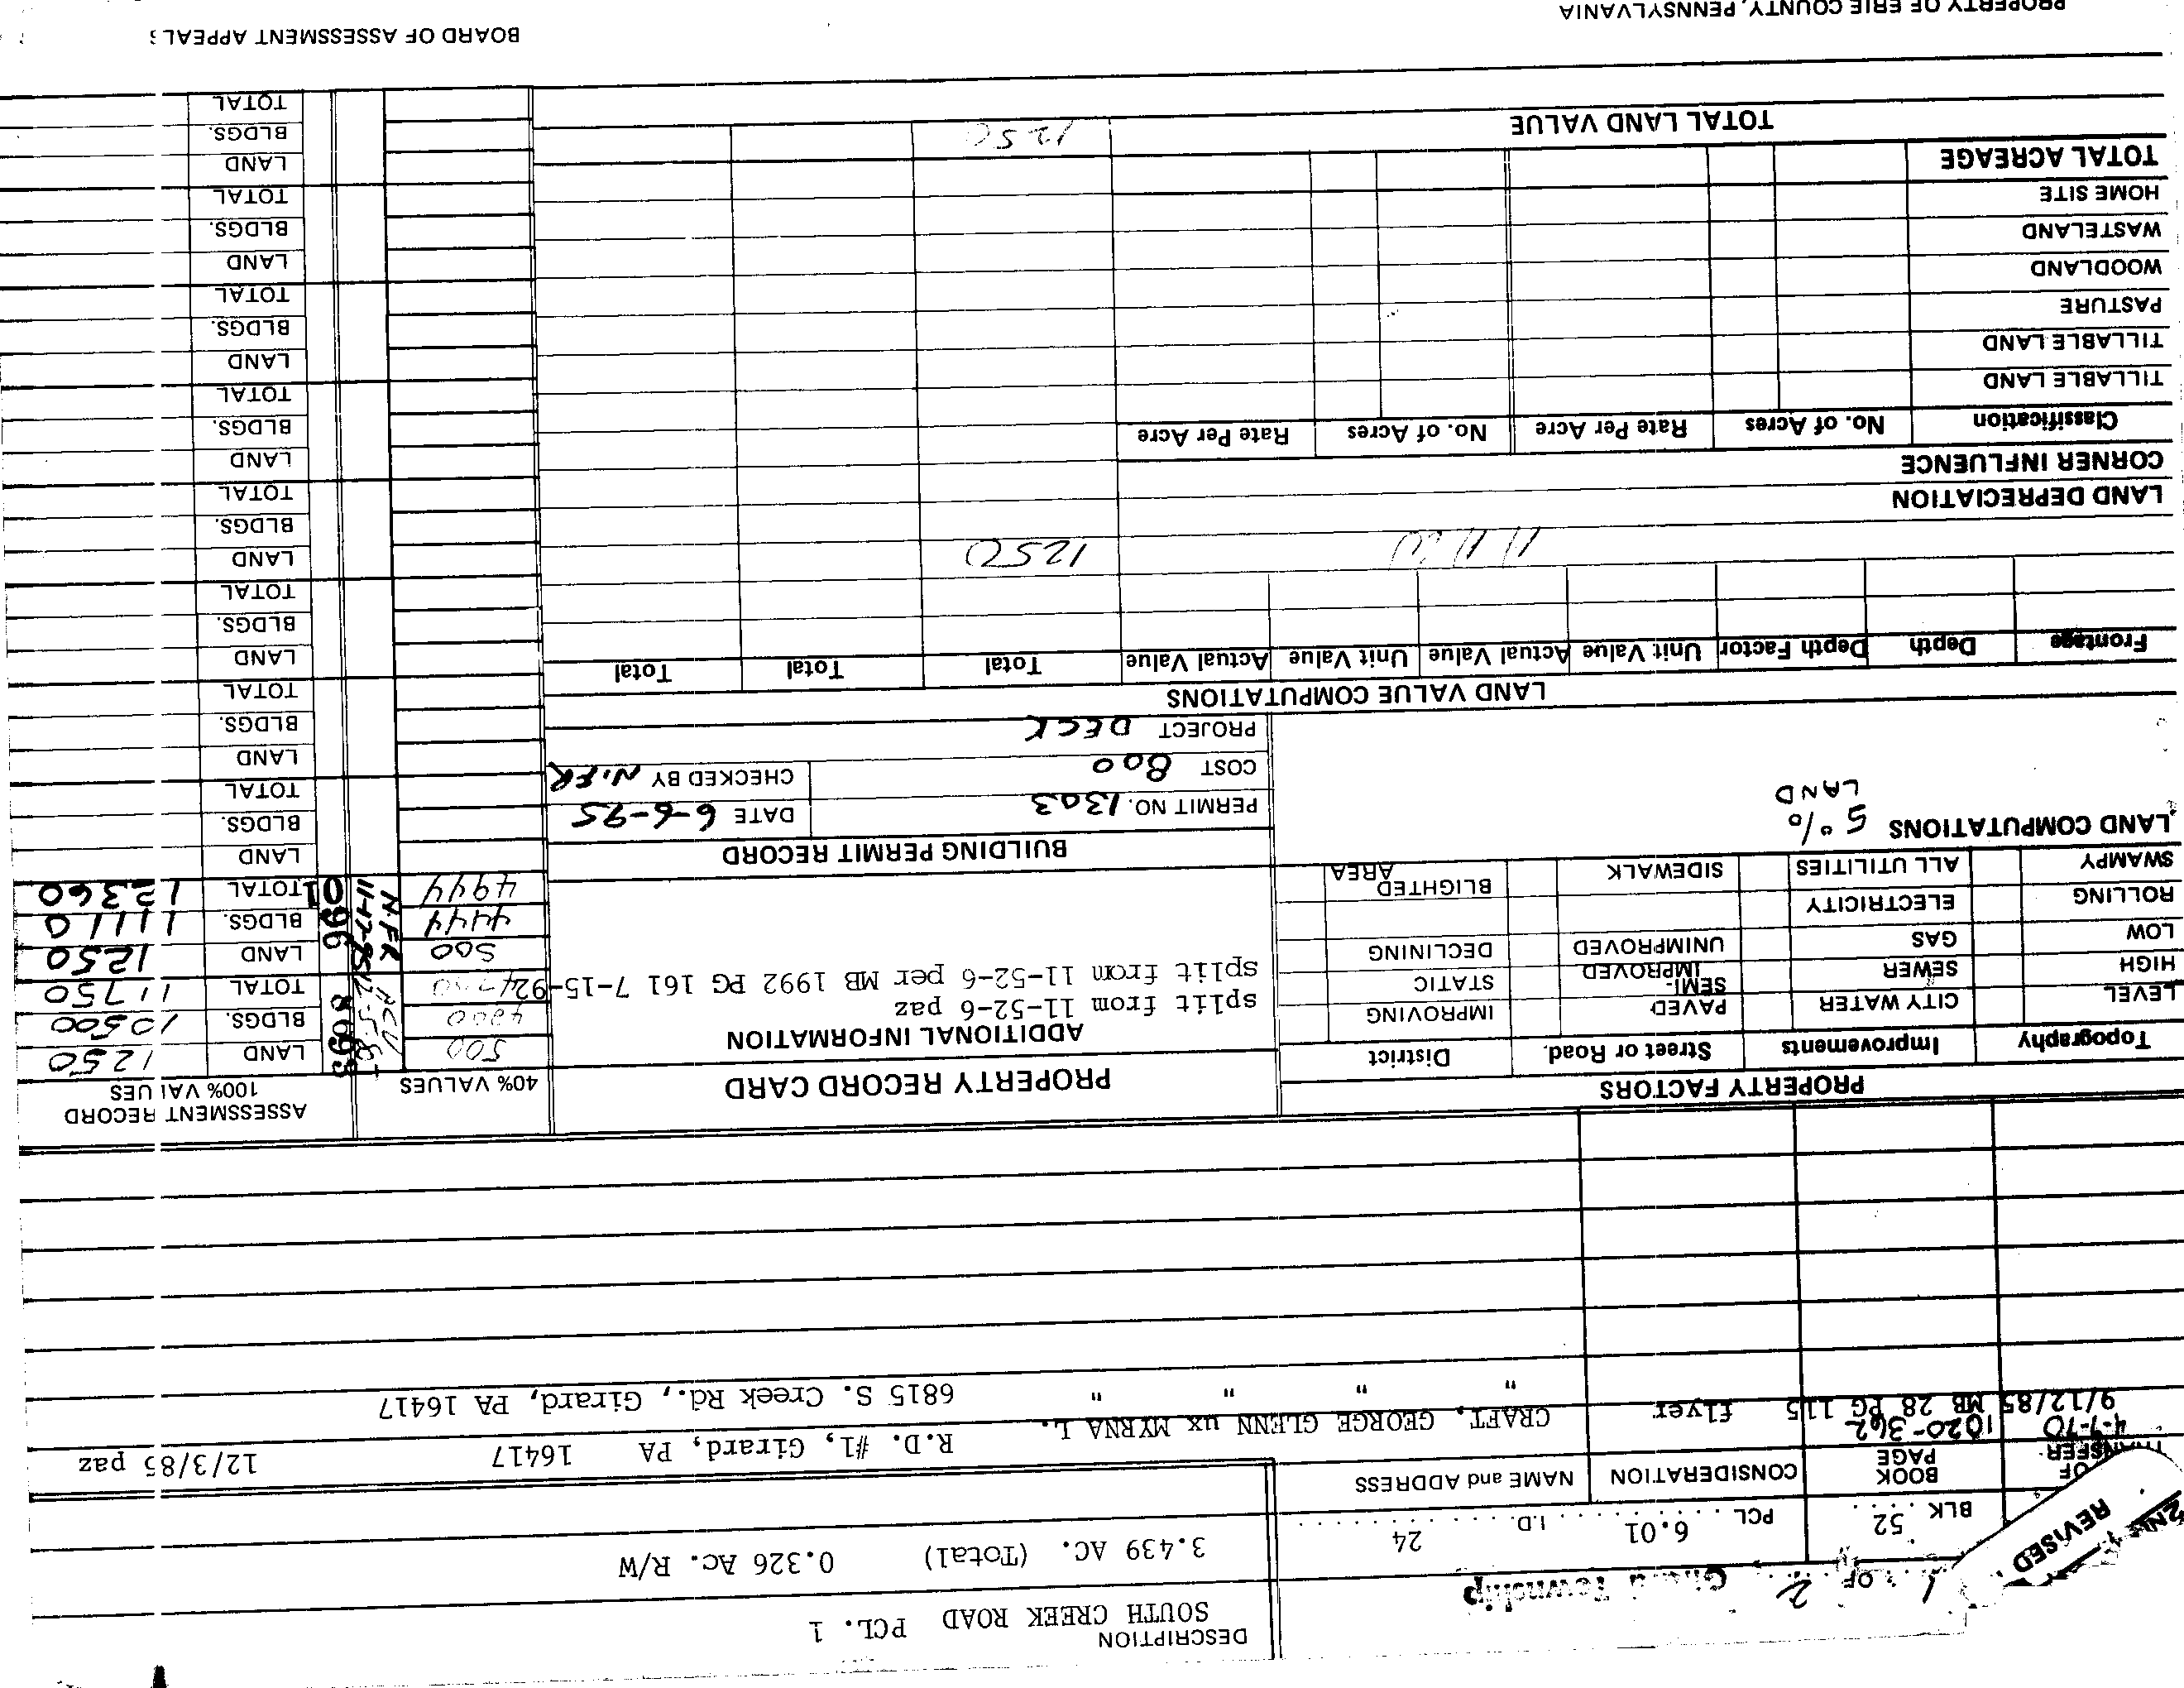 REVISED
1 OF 2 Girard Township
DESCRIPTION
SOUTH CREEK ROAD PCL. 1
BLK 52 PCL. 6.01 I.D. 24
3.439 AC. (Total) 0.326 Ac. R/W
OF TRANSFER
BOOK PAGE
CONSIDERATION
NAME and ADDRESS
4-7-70 1020-362
CRAFT, GEORGE GLENN ux MYRNA L. R.D. #1, Girard, PA 16417 12/3/85 paz
9/12/85 MB 28 PG 115 flyer " " " " 6815 S. Creek Rd., Girard, PA 16417
PROPERTY FACTORS
Topography Improvements Street or Road District
LEVEL CITY WATER PAVED IMPROVING
HIGH SEWER SEMI-IMPROVED STATIC
LOW GAS UNIMPROVED DECLINING
ROLLING ELECTRICITY
SWAMPY ALL UTILITIES SIDEWALK BLIGHTED AREA
LAND COMPUTATIONS 5%
LAND
PROPERTY RECORD CARD
ADDITIONAL INFORMATION
split from 11-52-6 paz
split from 11-52-6 per MB 1992 PG 161 7-15-92
BUILDING PERMIT RECORD
PERMIT NO. 1303 DATE 6-6-95
COST 800 CHECKED BY N.FR
PROJECT DECK
40% VALUES
ASSESSMENT RECORD
100% VALUES
500 8693 LAND 1250
4200 BLDGS. 10500
4700 TOTAL 11750
500 LAND 1250
4444 096 BLDGS. 11110
4944 N.FR 11-17-95 01 TOTAL 12360
LAND
BLDGS.
TOTAL
LAND
BLDGS.
TOTAL
LAND
BLDGS.
TOTAL
LAND
BLDGS.
TOTAL
LAND
BLDGS.
TOTAL
LAND
BLDGS.
TOTAL
LAND
BLDGS.
TOTAL
LAND
BLDGS.
TOTAL
LAND VALUE COMPUTATIONS
Frontage Depth Depth Factor Unit Value Actual Value Unit Value Actual Value Total Total Total
1250
LAND DEPRECIATION
CORNER INFLUENCE
Classification No. of Acres Rate Per Acre No. of Acres Rate Per Acre
TILLABLE LAND
TILLABLE LAND
PASTURE
WOODLAND
WASTELAND
HOME SITE
TOTAL ACREAGE
TOTAL LAND VALUE 1250
PROPERTY OF ERIE COUNTY, PENNSYLVANIA
BOARD OF ASSESSMENT APPEALS